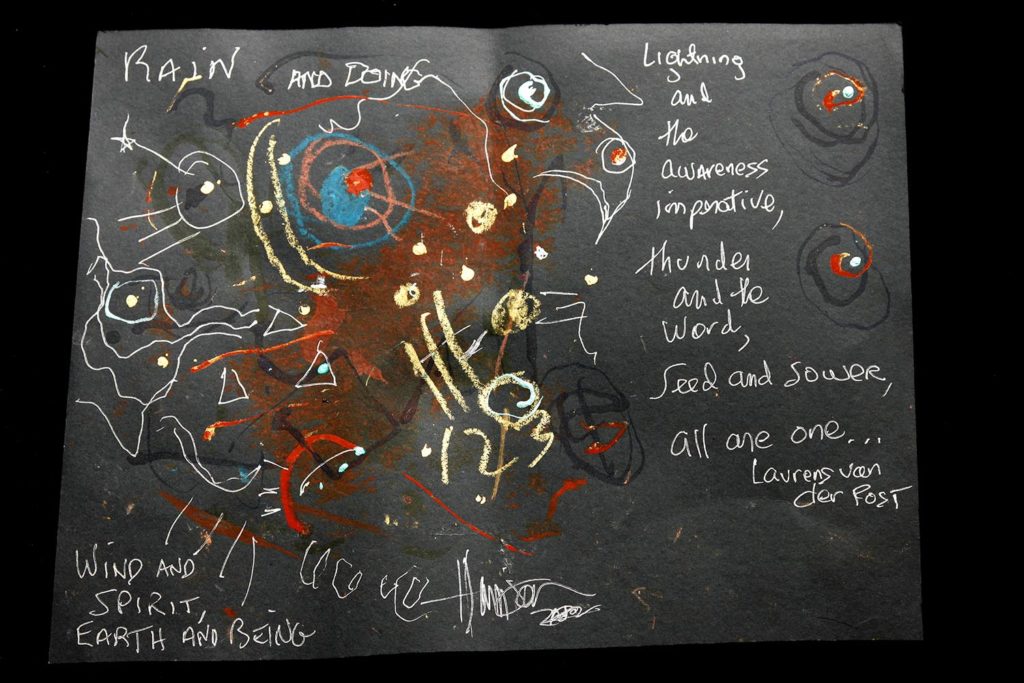 RAIN
AND DOING
Lightning
and
the
awareness
imperative,
thunder
and the
word,
Seed and sower,
all are one...
Laurens van
der Post
123
WIND AND
SPIRIT,
EARTH AND BEING